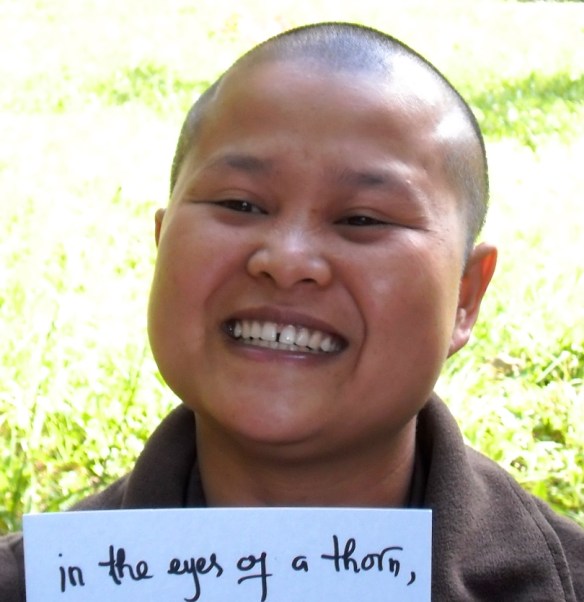 in the eyes of a thorn,